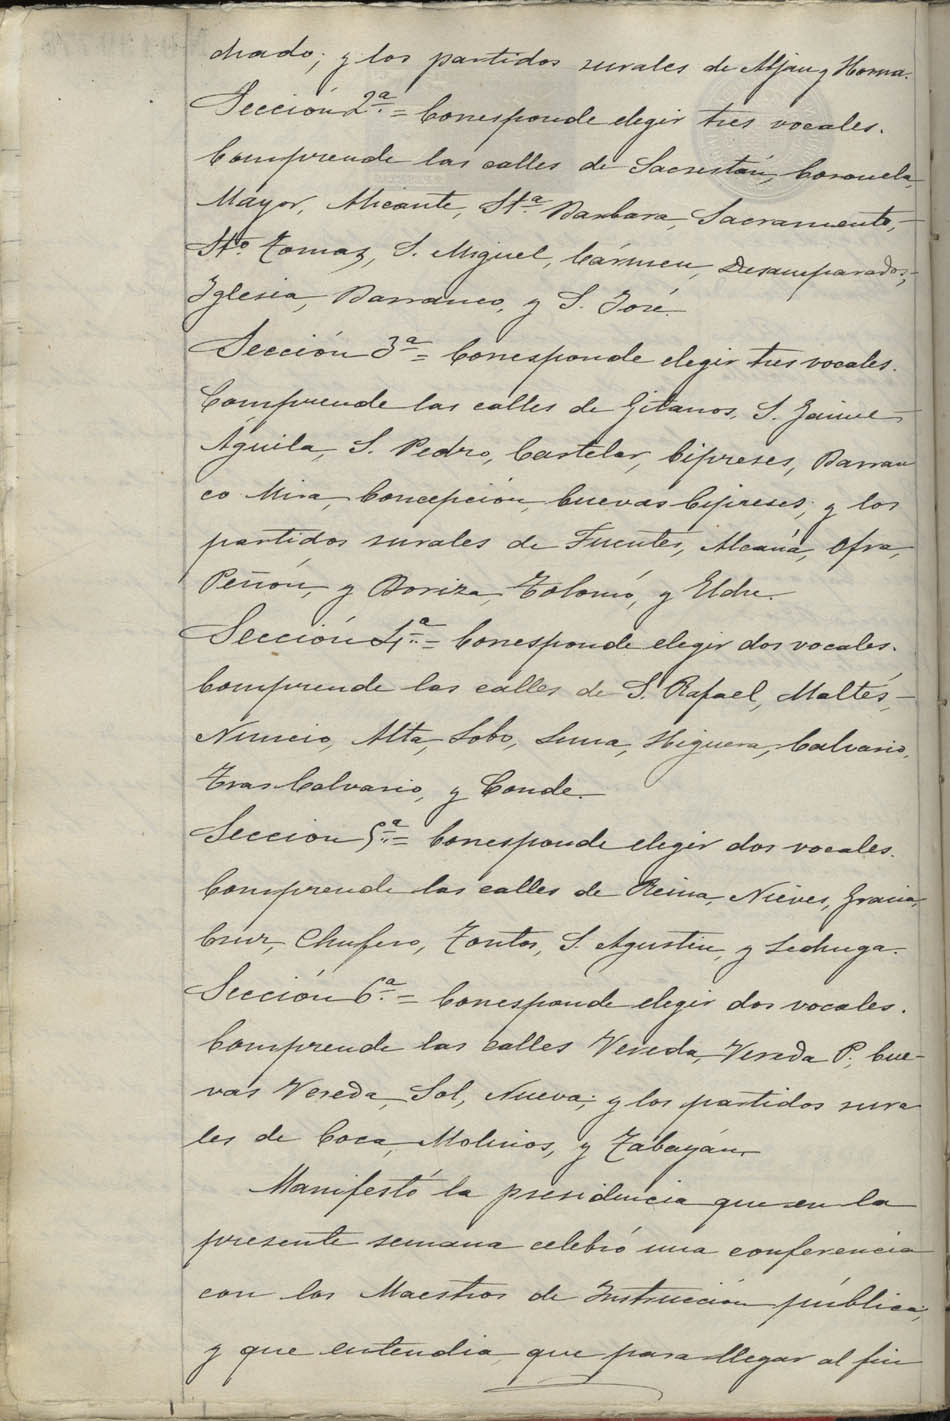 chado; y los partidos rurales de Aljau y Horna.
Sección 2ª = Corresponde elegir tres vocales.
Comprende las calles de Sacristán, Coronela,
Mayor, Alicante, Stª Barbara, Sacramento,
Stº Tomaz, S. Miguel, Cármen, Desamparados,
Iglesia, Barranco, y S. José.
Sección 3ª = Corresponde elegir tres vocales.
Comprende las calles de Gitanos, S. Jaime
Águila, S. Pedro, Castelar, Cipreses, Barran
co Mira, Concepción, Cuevas Cipreses; y los
partidos rurales de Fuentes, Alcaná, Ofra,
Peñón, y Boriza, Tolomó, y Elche.
Sección 4ª = Corresponde elegir dos vocales.
Comprende las calles de S. Rafael, Maltés,
Nuncio, Alta, Lobo, Luna, Higuera, Calvario,
Tras Calvario, y Conde.
Sección 5ª = Corresponde elegir dos vocales.
Comprende las calles de Reina, Nieves, Gracia,
Cruz, Chufero, Tontos, S. Agustin, y Lechuga.
Sección 6ª = Corresponde elegir dos vocales.
Comprende las calles Vereda, Vereda P., Cue-
vas Vereda, Sol, Nueva; y los partidos rura
les de Coca, Molinos, y Tabayán.
Manifestó la presidencia que en la
presente semana celebró una conferencia
con los Maestros de Instrucción pública;
y que entendia que para llegar al fin